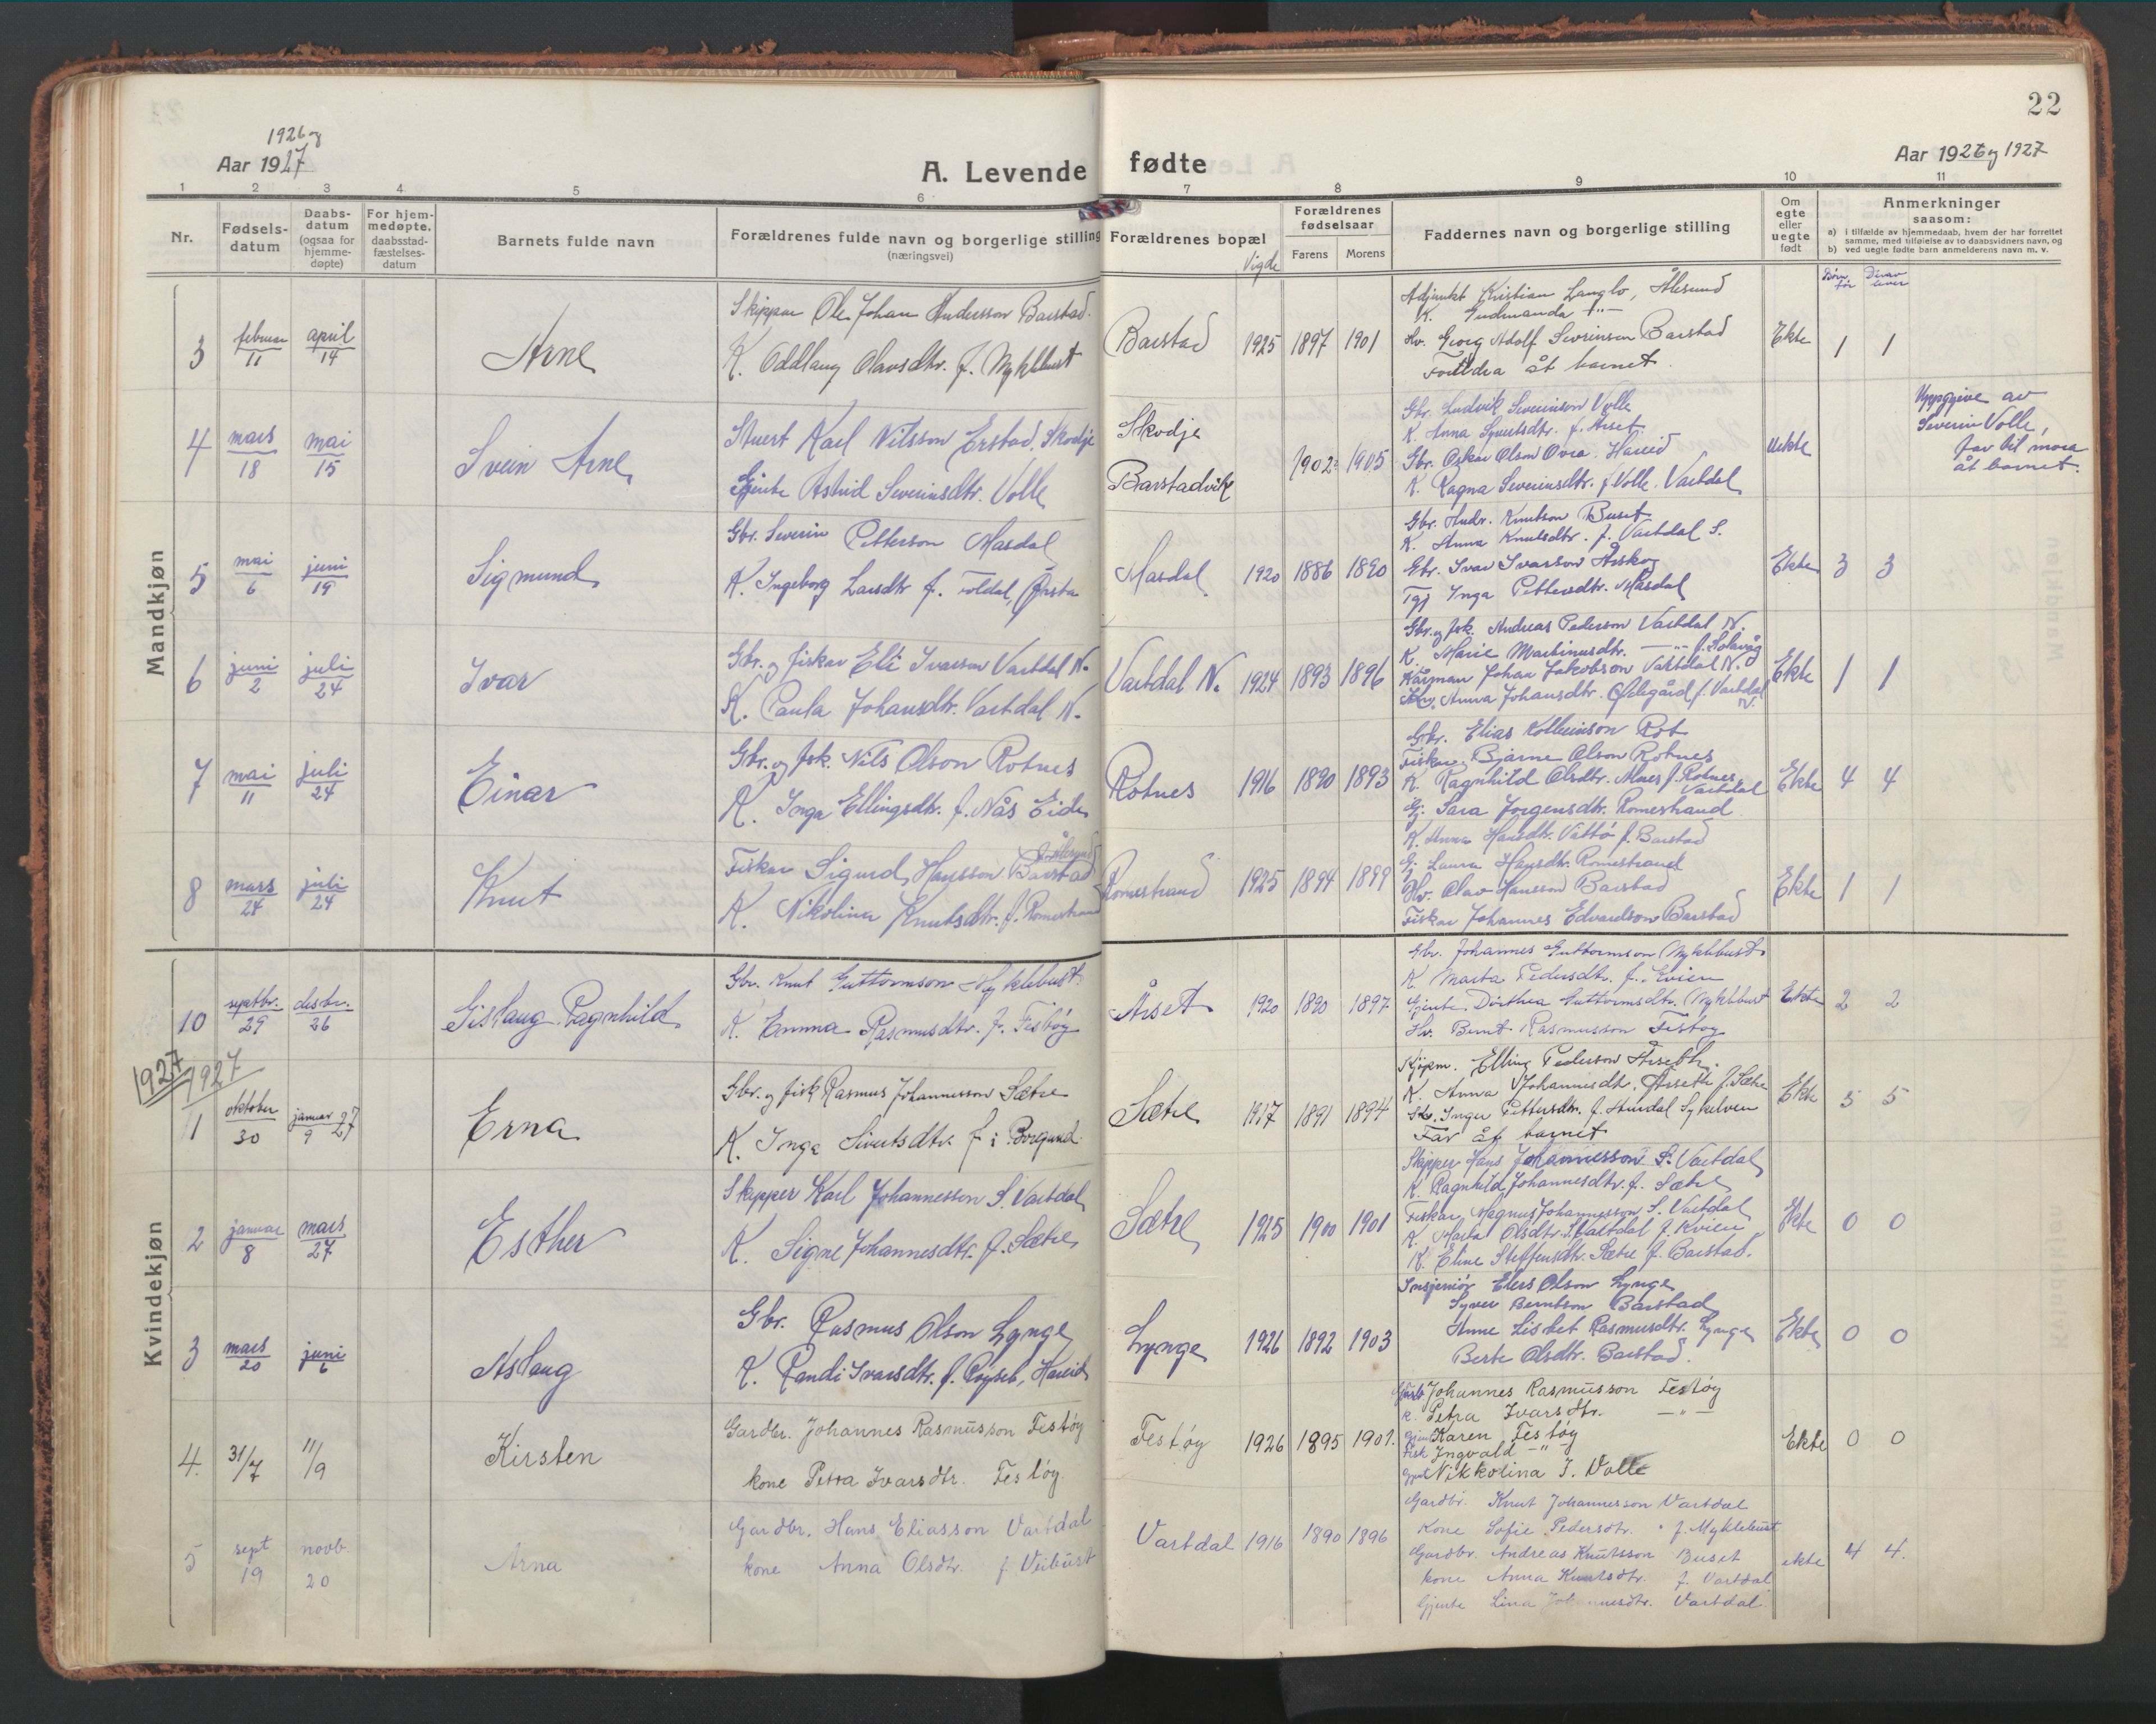 22
1926 og
Aar 1927
A. Levende fødte
Aar 1926 og 1927
1 2 3 4 5 6 7 8 9 10 11
Nr.
Fødsels-
datum
Daabs-
datum
(ogsaa for
hjemme-
døpte)
For hjem-
medøpte.
daabsstad-
fæstelses-
datum
Barnets fulde navn
Forældrenes fulde navn og borgerlige stilling
(næringsvei)
Forældrenes bopæl
Vigde
Forældrenes
fødselsaar
Farens Morens
Faddernes navn og borgerlige stilling
Om
egte
eller
uegte
født
Anmerkninger
saasom:
a) i tilfælde av hjemmedaab, hvem der har forrettet
samme, med tilføielse av to daabsvidners navn, og
b) ved uegte fødte barn anmelderens navn m. v.
Børn før
Derav lever
Mandkjøn
3 februar 11 april 14
Arne
Skippar Ole Johan Andersson Barstad.
K. Oddlaug Olavsdtr. f. Myklebust
Barstad 1925 1897 1901
Adjunkt Kristian Langlo, Ålesund
K. Gudmunda -"-
Hv. Georg Adolf Severinson Barstad
Foreldra åt barnet.
Ekte 1 1
4 mars 18 mai 15
Svein Arne
Stuert Karl Nilsson Erstad, Skodje
Gjente Astrid Severinsdtr. Volle
Skodje
Barstadvik
1902 1905
Gbr. Ludvik Severinson Volle
K. Anna Syvertsdtr. f. Årset.
Gbr. Oskar Olson Ovra Hareid
K. Ragna Severinsdtr. f. Volle. Vartdal
Uekte
Uppgjeve av
Severin Volle,
far til mora
åt barnet.
5 mai 6 juni 19
Sigmund
Gbr. Severin Petterson Masdal
K. Ingeborg Larsdtr f. Foldal, Ørsta
Masdal 1920 1886 1890
Gbr. Andr. Knutson Buset
K. Anna Knutsdtr. f. Vartdal S.
Gbr. Ivar Ivarson Årskog
Tgj Inga Pettersdtr. Masdal
Ekte 3 3
6 juni 2 juli 24
Ivar
Gbr. og fiskar Eli Ivarson Vartdal N.
K. Paula Johansdtr. Vartdal N.
Vartdal N. 1924 1893 1896
Gbr. og fisk. Andreas Pederson Vartdal N.
K. Marie Martinusdtr. -"- f. Solavåg
Kårmann Johan Jakobson Vartdal N.
Anna Johansdtr. Ødegård f. Vartdal N.
Ekte 1 1
7 mai 11 juli 24
Einar
Gbr. og fisk. Nils Olson Rotnes
K. Inga Ellingsdtr. f. Nås Eide
Rotnes 1916 1890 1893
Gbr. Elias Kolbeinson Rot
Fiskar Bjarne Olson Rotnes
K. Ragnhild Olsdtr. Alnes f. Rotnes, Vartdal
Gj. Sara Jorgensdtr. Romestrand
Ekte 4 4
8 mars 24 juli 24
Knut
Fiskar Sigurd Hansson Barstad
Ålesund
K. Nikoline Knutsdtr. f. Romestrand
Romestrand 1925 1894 1899
K. Anna Hansdtr. Vattø f. Barstad
Gj. Laura Hansdtr. Romestrand
Hv. Olav Hansson Barstad
Fiskar Johannes Edvardson Barstad
Ekte 1 1
Kvindekjøn
10 septbr. 29 desbr. 26
Gislaug Ragnhild
Gbr. Knut Guttormson Myklebust
K. Emma Rasmusdtr. f. Festøy
Årset 1920 1890 1897
Gbr. Johannes Guttormson Myklebust
K Marta Pedersdtr. f.
Gjente Dorthea Guttormsdtr. Myklebust
Hv. Bernt Rasmusson Festøy
Ekte 2 2
1927 1927
1 oktober 30 januar 9 27
Erna
Gbr. og fisk Rasmus Johannesson Sætre
K. Inga Sivertsdtr. f. i Borgund.
Sætre 1917 1891 1894
Kjøpm. Elling Pederson Årseth.
K. Anna Johannesdtr. Årseth f. Sætre
K. Inger Pettersdtr. f. Sykelven
Far åt barnet
Ekte 5 5
2 januar 8 mars 27
Esther
Skipper Karl Johannesson S. Vartdal
K. Signe Johannesdtr. f. Sætre
Sætre 1925 1900 1901
Skipper Hans Johannesson S. Vartdal
K. Ragnhild Johannesdtr. f. Sætre
Fiskar Magnus Johannesson S. Vartdal
K. Marta Olsdtr. S. Vartdal f. Kvien
K. Eline Steffensdtr. Sætre f. Barstad.
Ekte 0 0
3 mars 20 juni 6
Aslaug
Gbr. Rasmus Olson Lynge
K. Randi Ivarsdtr. f. Røyset, Hareid
Lynge 1926 1892 1903
Insjeniør Elers Olson Lynge
Syver Berntson Barstad
Anne Lisbet Rasmusdtr. Lynge
Berte Olsdtr. Barstad.
Ekte 0 0
4. 31/7 11/9
Kirsten
Gardbr. Johannes Rasmusson Festøy
kone Petra Ivarsdtr. Festøy.
Festøy 1926 1895 1901.
Johannes Rasmusson Festøy
K. Petra Ivarsdtr. -"-
Gjent Karen Festøy
Fisk Ingvald -"-
Gjent Nikkolina I. Volle
Ekte 0 0
5 sept 19 novb. 20
Arna
Gardbr. Hans Eliasson Vartdal
kone Anna Olsdtr. f. Veibust
Vartdal 1916 1890 1896
Gardbr. Knut Johannesson Vartdal
Kone Sofie Pedersdtr. f. Myklebust
Gardbr. Andreas Knutsson Buset
kone Anna Knutsdtr. f. Vartdal
Gjente Lina Johannesdtr. Vartdal
ekte 4 4.